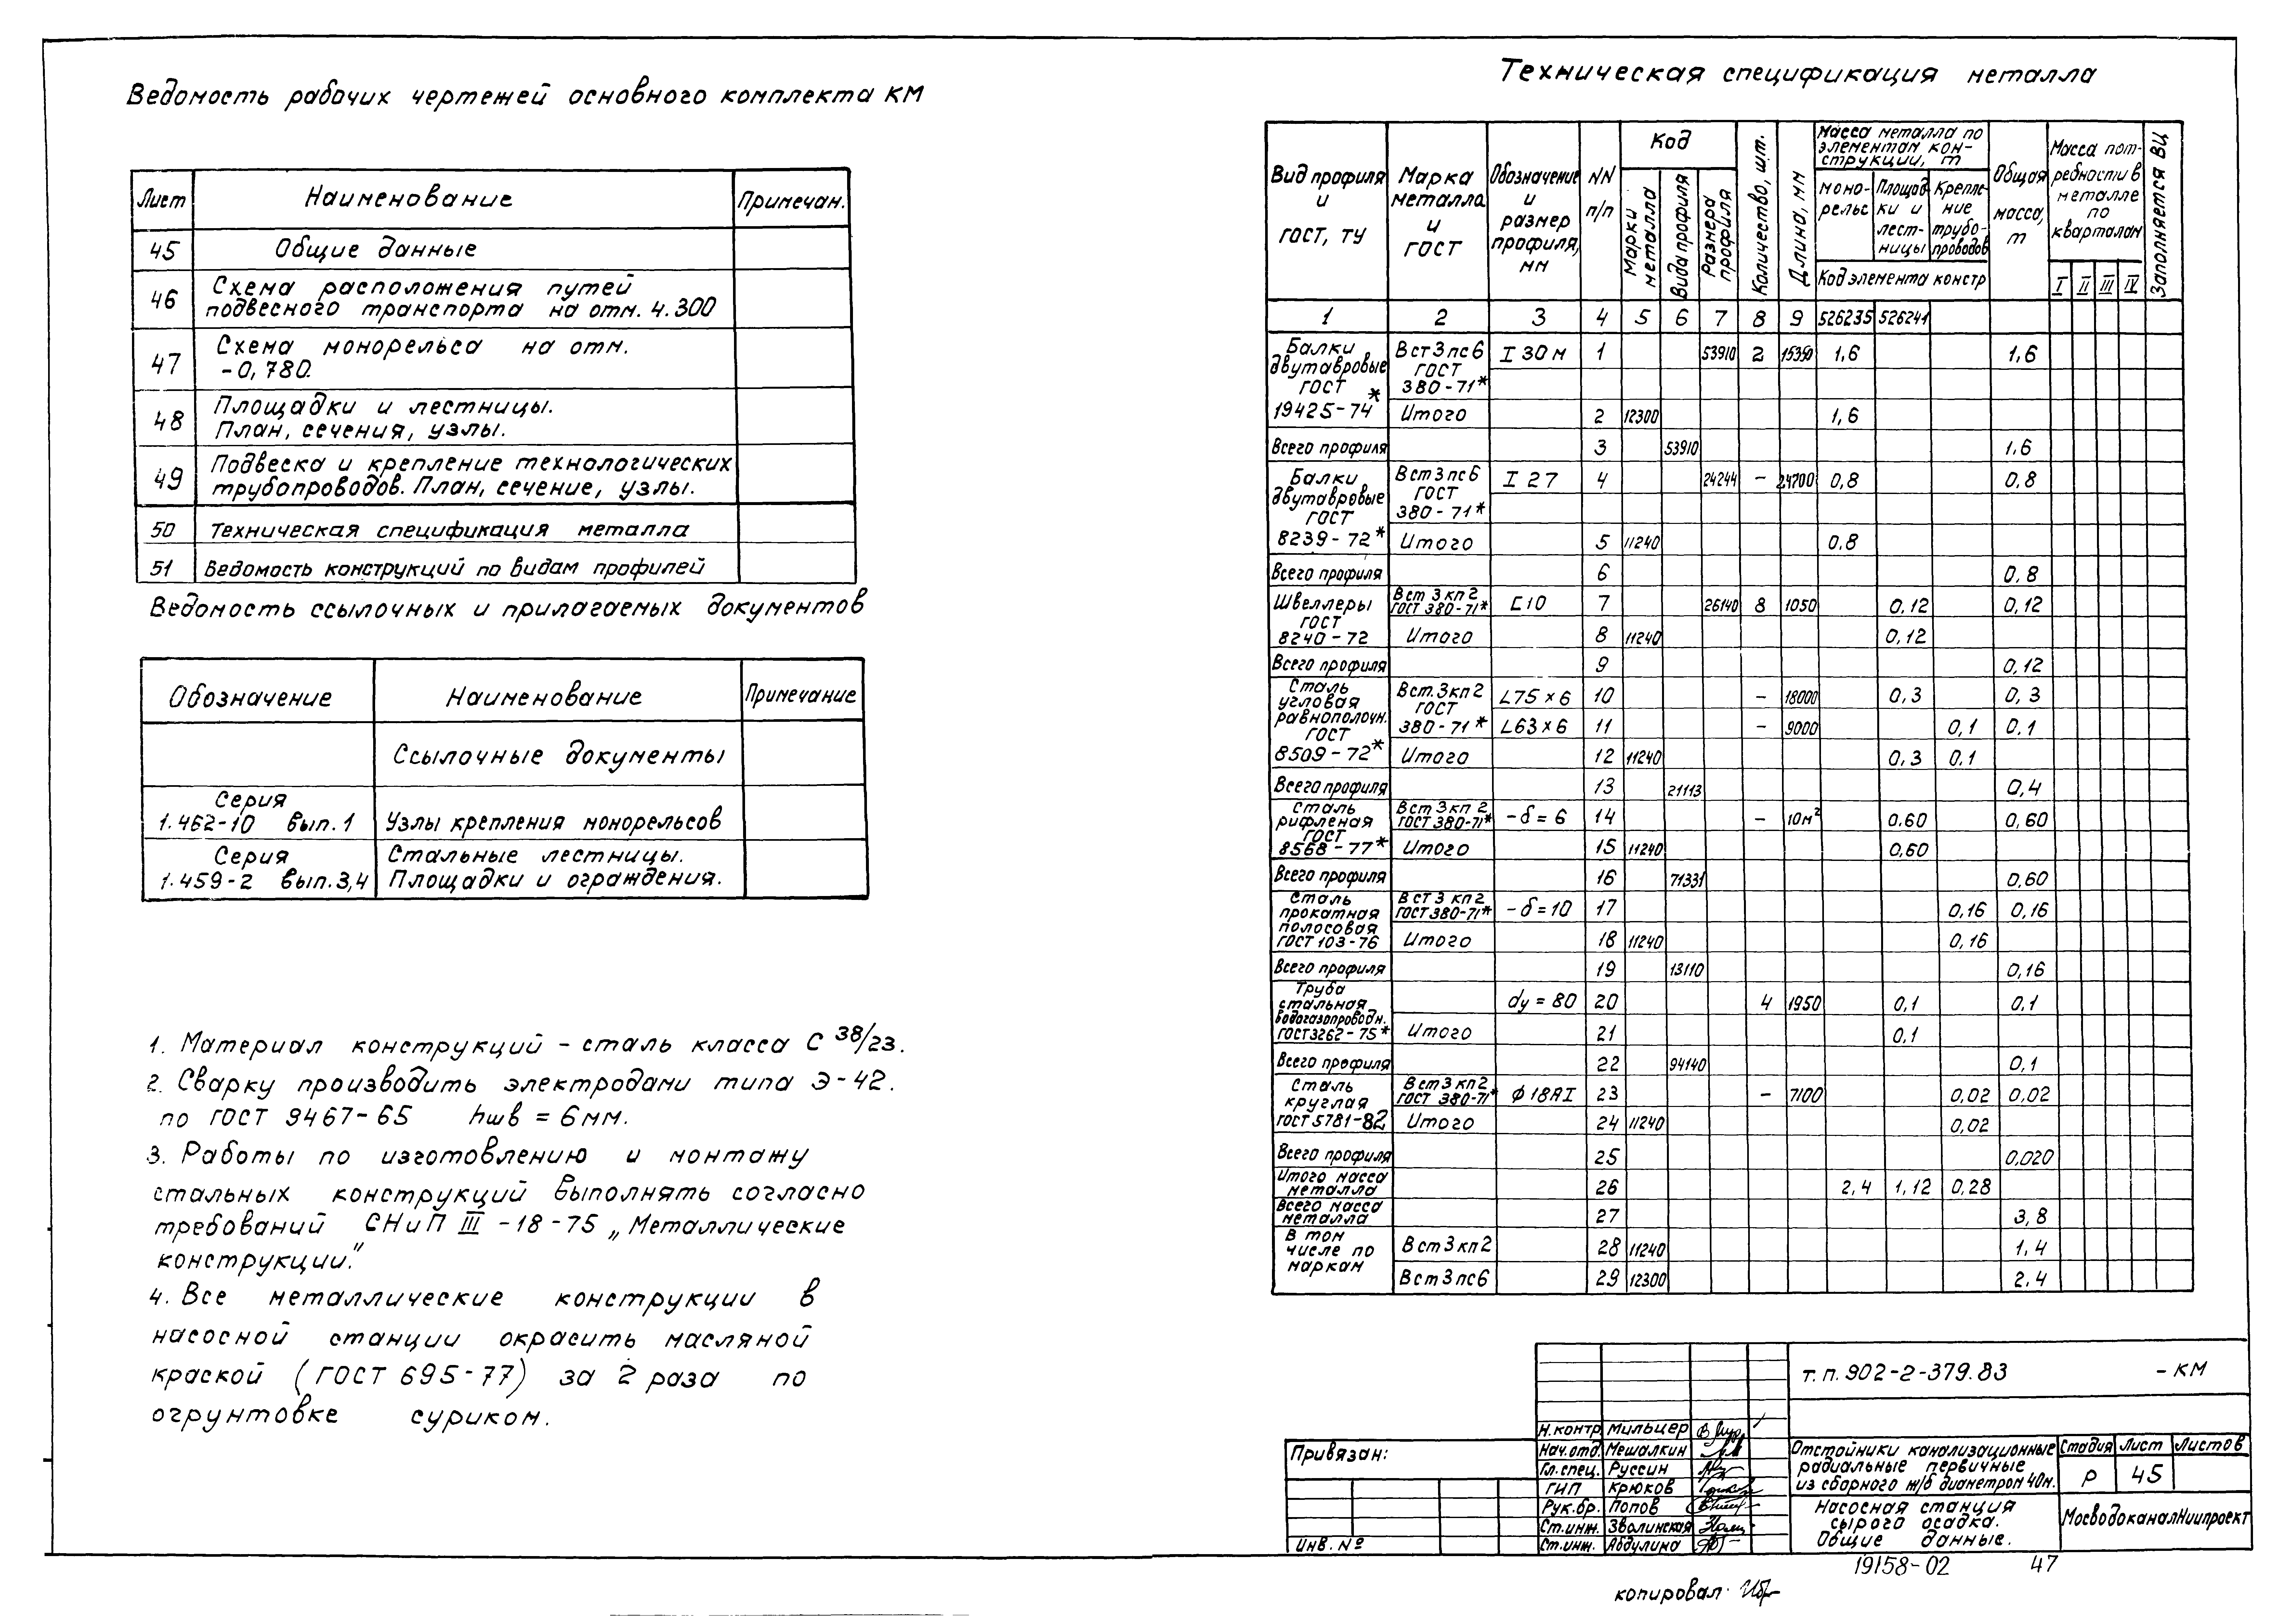 Ведомость рабочих чертежей основного комплекта КМ
Лист Наименование Примечан.
45 Общие данные
46 Схема расположения путей
подвесного транспорта на отм. 4.300
47 Схема монорельса на отм.
-0,780.
48 Площадки и лестницы.
План, сечения, узлы.
49 Подвеска и крепление технологических
трубопроводов. План, сечение, узлы.
50 Техническая спецификация металла
51 Ведомость конструкций по видам профилей
Ведомость ссылочных и прилагаемых документов
Обозначение Наименование Примечание
Ссылочные документы
Серия
1.462-10 вып.1 Узлы крепления монорельсов
Серия Стальные лестницы.
1.459-2 вып.3,4 Площадки и ограждения.
1. Материал конструкций - сталь класса С 38/23.
2. Сварку производить электродами типа Э-42.
по ГОСТ 9467-65 hшв = 6мм.
3. Работы по изготовлению и монтажу
стальных конструкций выполнять согласно
требований СНиП III -18-75 „Металлические
конструкции."
4. Все металлические конструкции в
насосной станции окрасить масляной
краской (ГОСТ 695-77) за 2 раза по
огрунтовке суриком.
Техническая спецификация металла
Вид профиля и ГОСТ, ТУ
Марка металла и ГОСТ
Обозначение и размер профиля, мм
NN п/п
Код
Марки металла
Вида профиля
Размера профиля
Количество, шт.
Длина, мм
Масса металла по элементам конструкции, т
моно-рельс
Площад-ки и лест-ницы
Крепле-ние трубо-проводов
Код элемента констр
Общая масса, т
Масса пот-ребности в металле по кварталам
I II III IV
Заполняется ВЦ
1 2 3 4 5 6 7 8 9 526235 526241
Балки двутавровые ГОСТ 19425-74* Вст3пс6 ГОСТ 380-71* I 30м 1 53910 2 15350 1,6 1,6
Итого 2 12300 1,6
Всего профиля 3 53910 1,6
Балки двутавровые ГОСТ 8239-72* Вст3пс6 ГОСТ 380-71* I 27 4 24244 - 24700 0,8 0,8
Итого 5 11240 0,8
Всего профиля 6 0,8
Швеллеры ГОСТ 8240-72 Вст 3кп2 ГОСТ 380-71* [10 7 26140 8 1050 0,12 0,12
Итого 8 11240 0,12
Всего профиля 9 0,12
Сталь угловая равнополочн. ГОСТ 8509-72* Вст.3кп2 ГОСТ 380-71* L75×6 10 - 18000 0,3 0,3
L63×6 11 - 9000 0,1 0.1
Итого 12 11240 0,3 0,1
Всего профиля 13 21113 0,4
Сталь рифленая ГОСТ 8568-77* Вст 3кп 2 ГОСТ 380-71* -δ=6 14 - 10м² 0.60 0,60
Итого 15 11240 0,60
Всего профиля 16 71331 0,60
Сталь прокатная полосовая ГОСТ 103-76 Вст 3 кп2 ГОСТ 380-71* -δ=10 17 0,16 0,16
Итого 18 11240 0,16
Всего профиля 19 13110 0,16
Труба стальная водогазопроводн. ГОСТ 3262-75* dy=80 20 4 1950 0,1 0.1
Итого 21 0,1
Всего профиля 22 94140 0,1
Сталь круглая ГОСТ 5781-82 Вст3кп2 ГОСТ 380-71* Ф18АI 23 - 7100 0,02 0,02
Итого 24 11240 0,02
Всего профиля 25 0,020
Итого масса металла 26 2,4 1,12 0,28
Всего масса металла 27 3,8
В том числе по маркам Вст3кп2 28 11240 1,4
Вст3пс6 29 12300 2.4
т.п.902-2-379.83 -КМ
Привязан:
Инв.№
Н.контр Мильцер
Нач.отд. Мешалкин
Гл.спец. Руссин
ГИП Крюков
Рук.бр. Попов
Ст.инж. Зволинская
Ст.инж. Абдулина
Отстойники канализационные
радиальные первичные
из сборного ж/б диаметром 40м.
Стадия Лист Листов
Р 45
Насосная станция
сырого осадка.
Общие данные.
МосводоканалНиипроект
19158-02 47
копировал